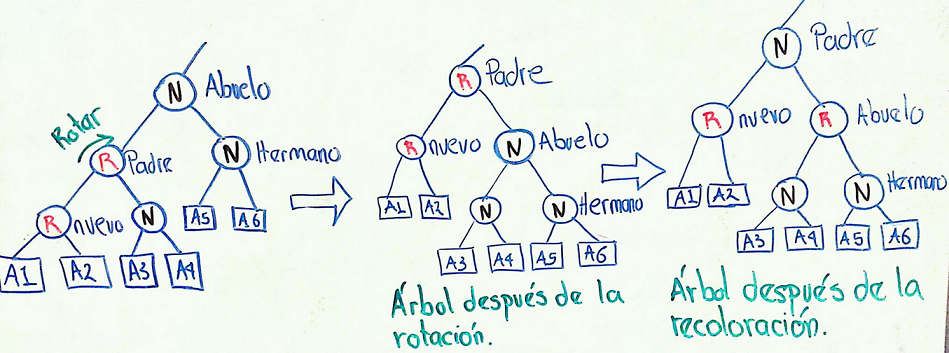 N Abuelo
Rotar
R Padre
N Hermano
R nuevo
N
A5 A6
A1 A2 A3 A4
R Padre
R nuevo
N Abuelo
A1 A2
N
N Hermano
A3 A4 A5 A6
Árbol después de la
rotación.
N Padre
R nuevo
R Abuelo
A1 A2
N
N Hermano
A3 A4 A5 A6
Árbol después de la
recoloración.